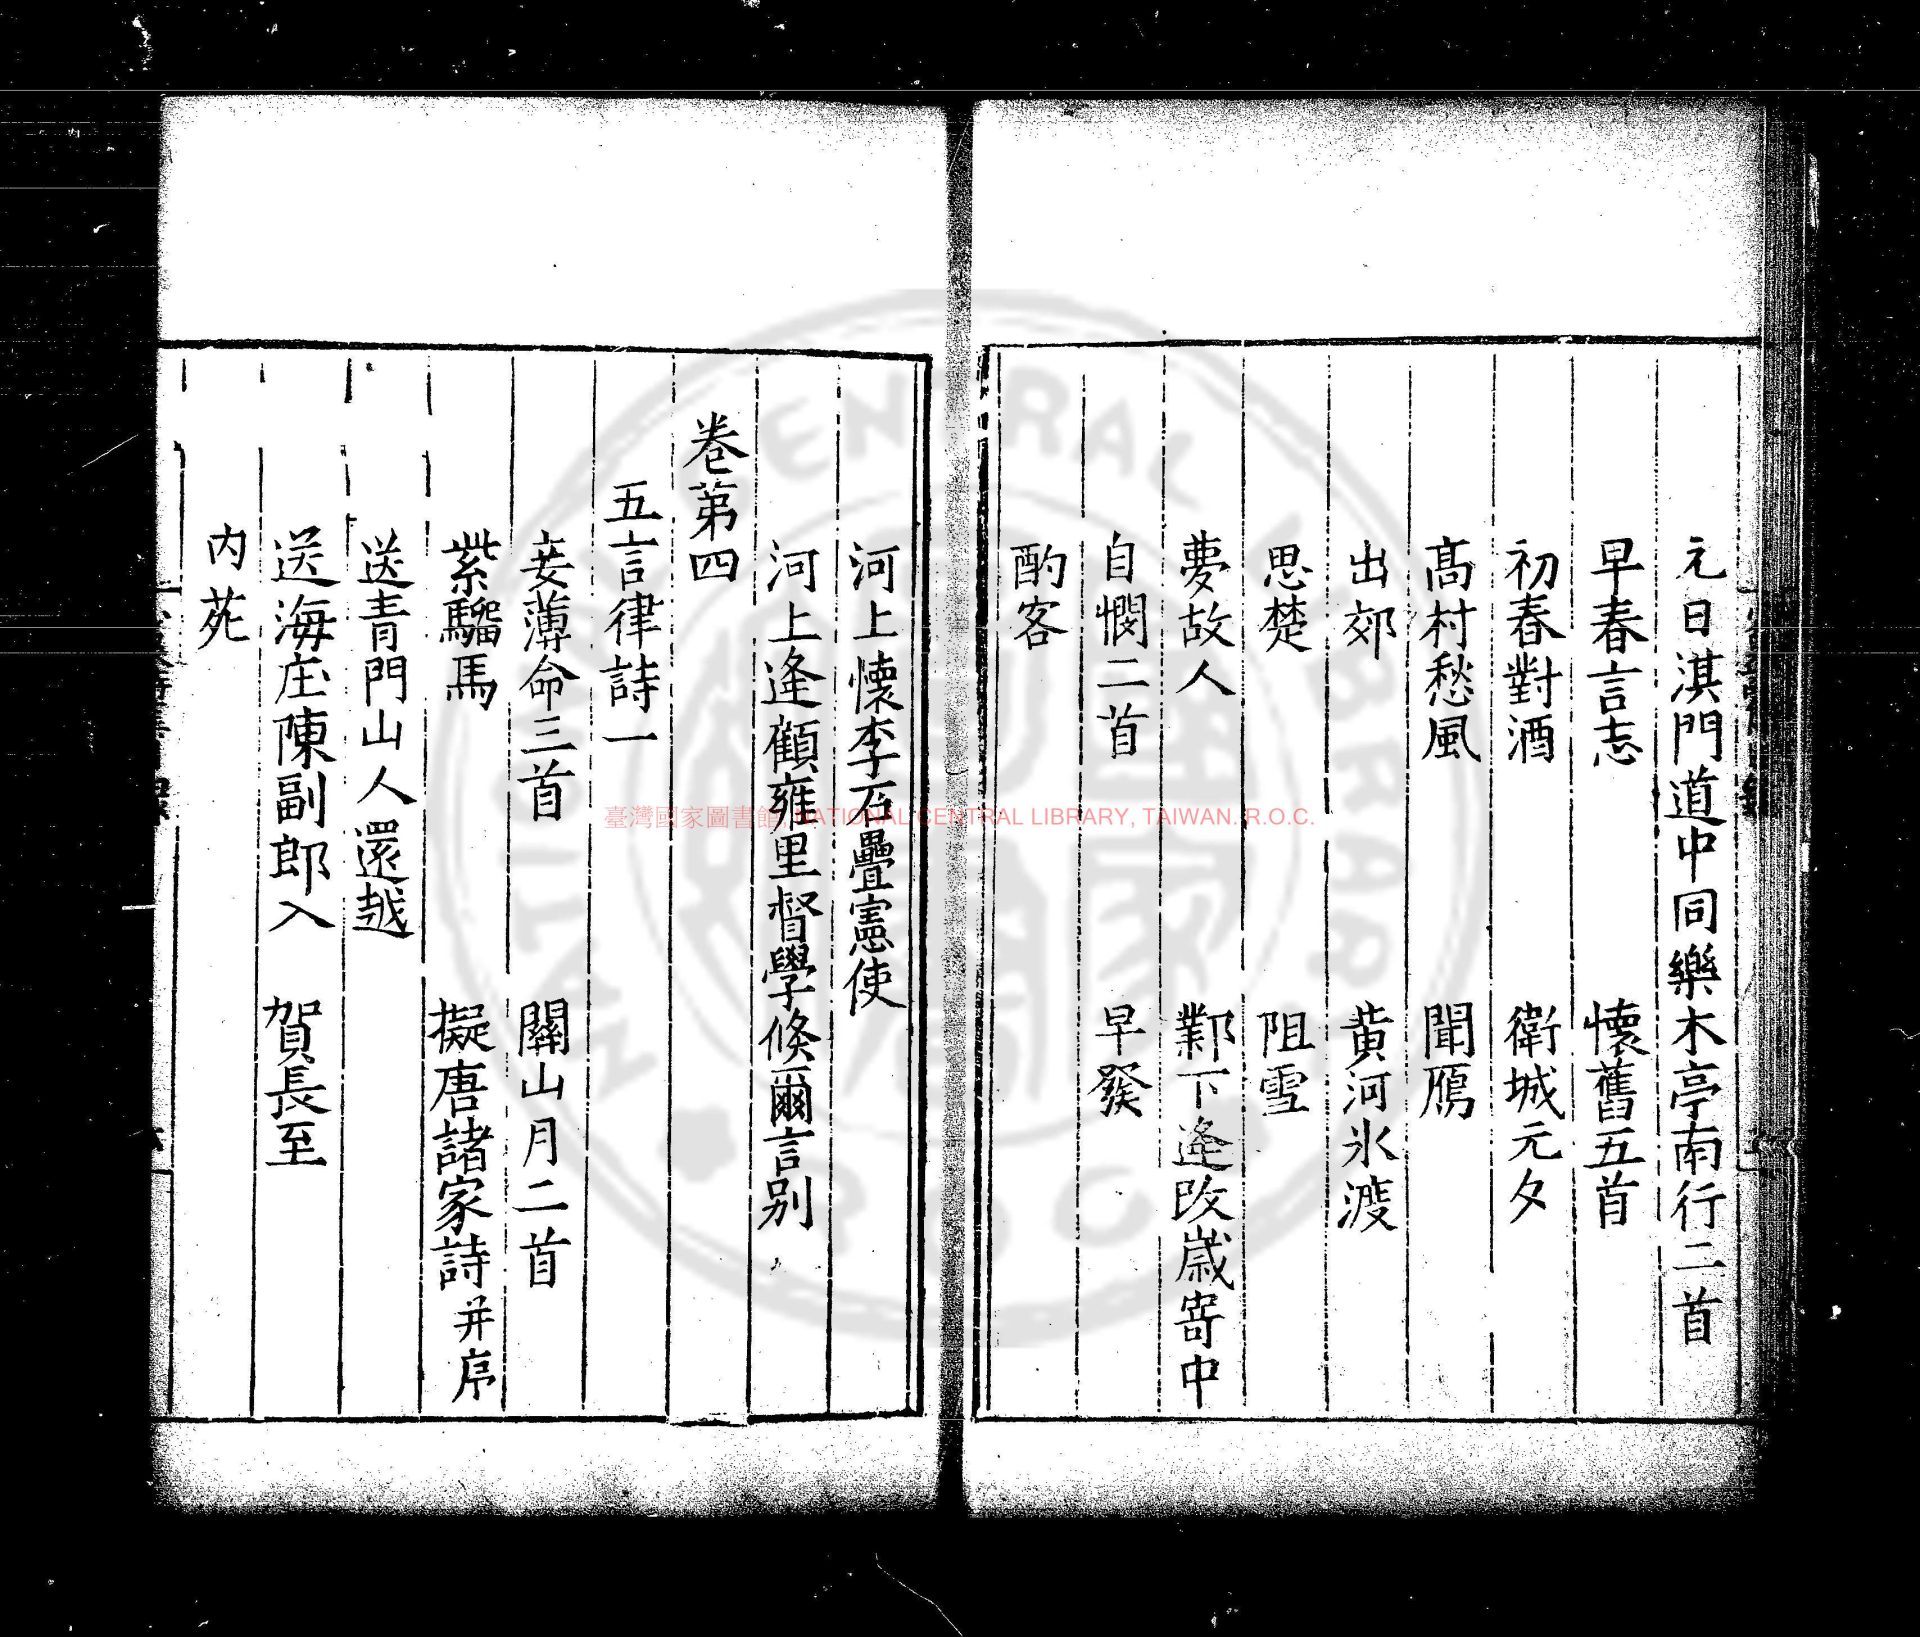 元日淇門道中同樂木亭南行二首
早春言志　懷舊五首
初春對酒　衛城元夕
髙村愁風　聞鴈
出郊　黄河氷渡
思楚　阻雪
夢故人　鄴下逢改歲寄中
自憫二首　早發
酌客
河上懷李石疊憲使
河上逢顧雍里督學倐爾言别
卷苐四
五言律詩一
妾薄命三首　關山月二首
紫騮馬　擬唐諸家詩并序
送青門山人還越
送海庄陳副郎入　賀長至
内苑
臺灣國家圖書館, NATIONAL CENTRAL LIBRARY, TAIWAN. R.O.C.